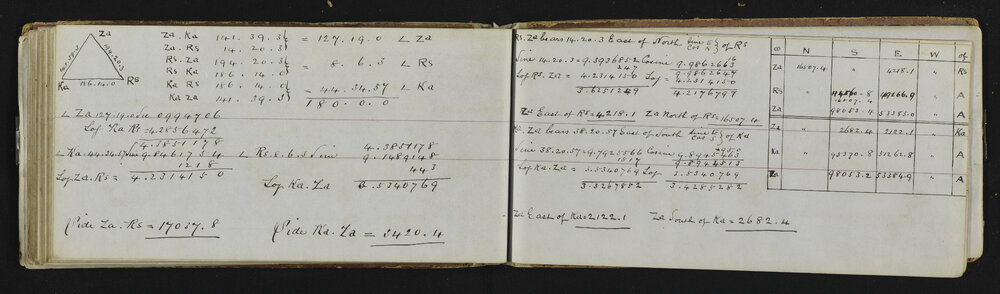 Za
Ka Rs
186.14.0
Za. Ka 141.39.3
Za. Rs 14.20.3
= 127.19.0 ∠ Za
Rs. Za 194.20.3
Rs Ka 186.14.0
= 8.6.3 ∠ Rs
Ka Rs 186.14.0
Ka Za 141.39.3
= 44.34.57 ∠ Ka
180.0.0
∠ Za 127.19.0 0994706
Log Ka Rs = 4.2856472
4.3851178
∠ Ka 44.34.57 Sine 9.8461754
1218
Log Za. Rs = 4.2314150
4.3851178
∠ Rs 8.6.3 Sine 9.1489148
443
Log Ka. Za 3.5340769
Side Za. Rs = 17037.8
Side Ka. Za = 3420.4
Rs. Za bears 14.20.3 East of North Sine E Cos N } of Rs
Sine 14.20.3 = 9.3936852 Cosine 9.9862663
247 16
9.9862647
Log Rs. Za = 4.2314150 Log = 4.2314150
3.6251249 4.2176797
Za East of Rs = 4218.1 Za North of Rs = 16507.4
Ka. Za bears 38.20.57 East of South Sine E Cos S } of Ka
Sine 38.20.57 = 9.7925566 Cosine 9.8945463
1517 2950
9.8944513
Log Ka. Za = 3.5340769 Log 3.5340769
3.3267852 3.4285282
Za East of Ka = 2122.1 Za South of Ka = 2682.4
N S E W of
Za 16507.4 " 4218.1 " Rs
Rs 49266.9 " A
16507.4
Za 98053.4 53385.0 " A
Za " 2682.4 2122.1 " Ka
Ka " 95370.8 51262.8 " A
Za 98053.2 53384.9 " A